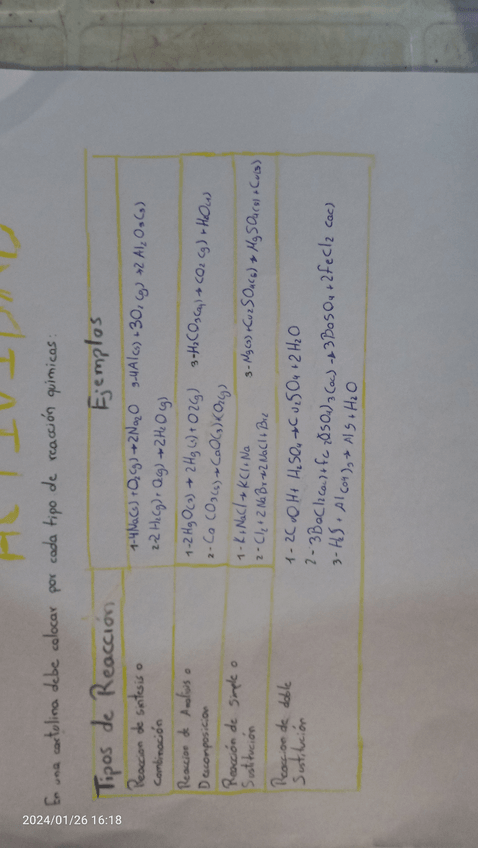 ACTIVIDAD
En una cartolina debe colocar por cada tipo de reacción químicas:
Tipos de Reacción Ejemplos
Reaccion de sintesis o
Combinación
1-4Na(s)+O2(g)→2Na2O 3-4Al(s)+3O2(g)→2Al2O3(s)
2-2H2(g)+O2(g)→2H2O(g)
Reaccion de Analisis o
Descomposicion
1-2HgO(s)→2Hg(s)+O2(g) 3-H2CO3(aq)→CO2(g)+H2O(l)
2-CaCO3(s)→CaO(s)+CO2(g)
Reacción de simple o
Sustitución
1-K+NaCl→KCl+Na 3-Mg(s)+Cu2SO4(s)→MgSO4(s)+Cu(s)
2-Cl2+2NaBr→2NaCl+Br2
Reaccion de doble
Sustitución
1-2CuOH+H2SO4→Cu2SO4+2H2O
2-3BaCl2(ac)+Fe2(SO4)3(ac)→3BaSO4+2FeCl2(ac)
3-H2S+Al(OH)3→AlS+H2O
2024/01/26 16:18